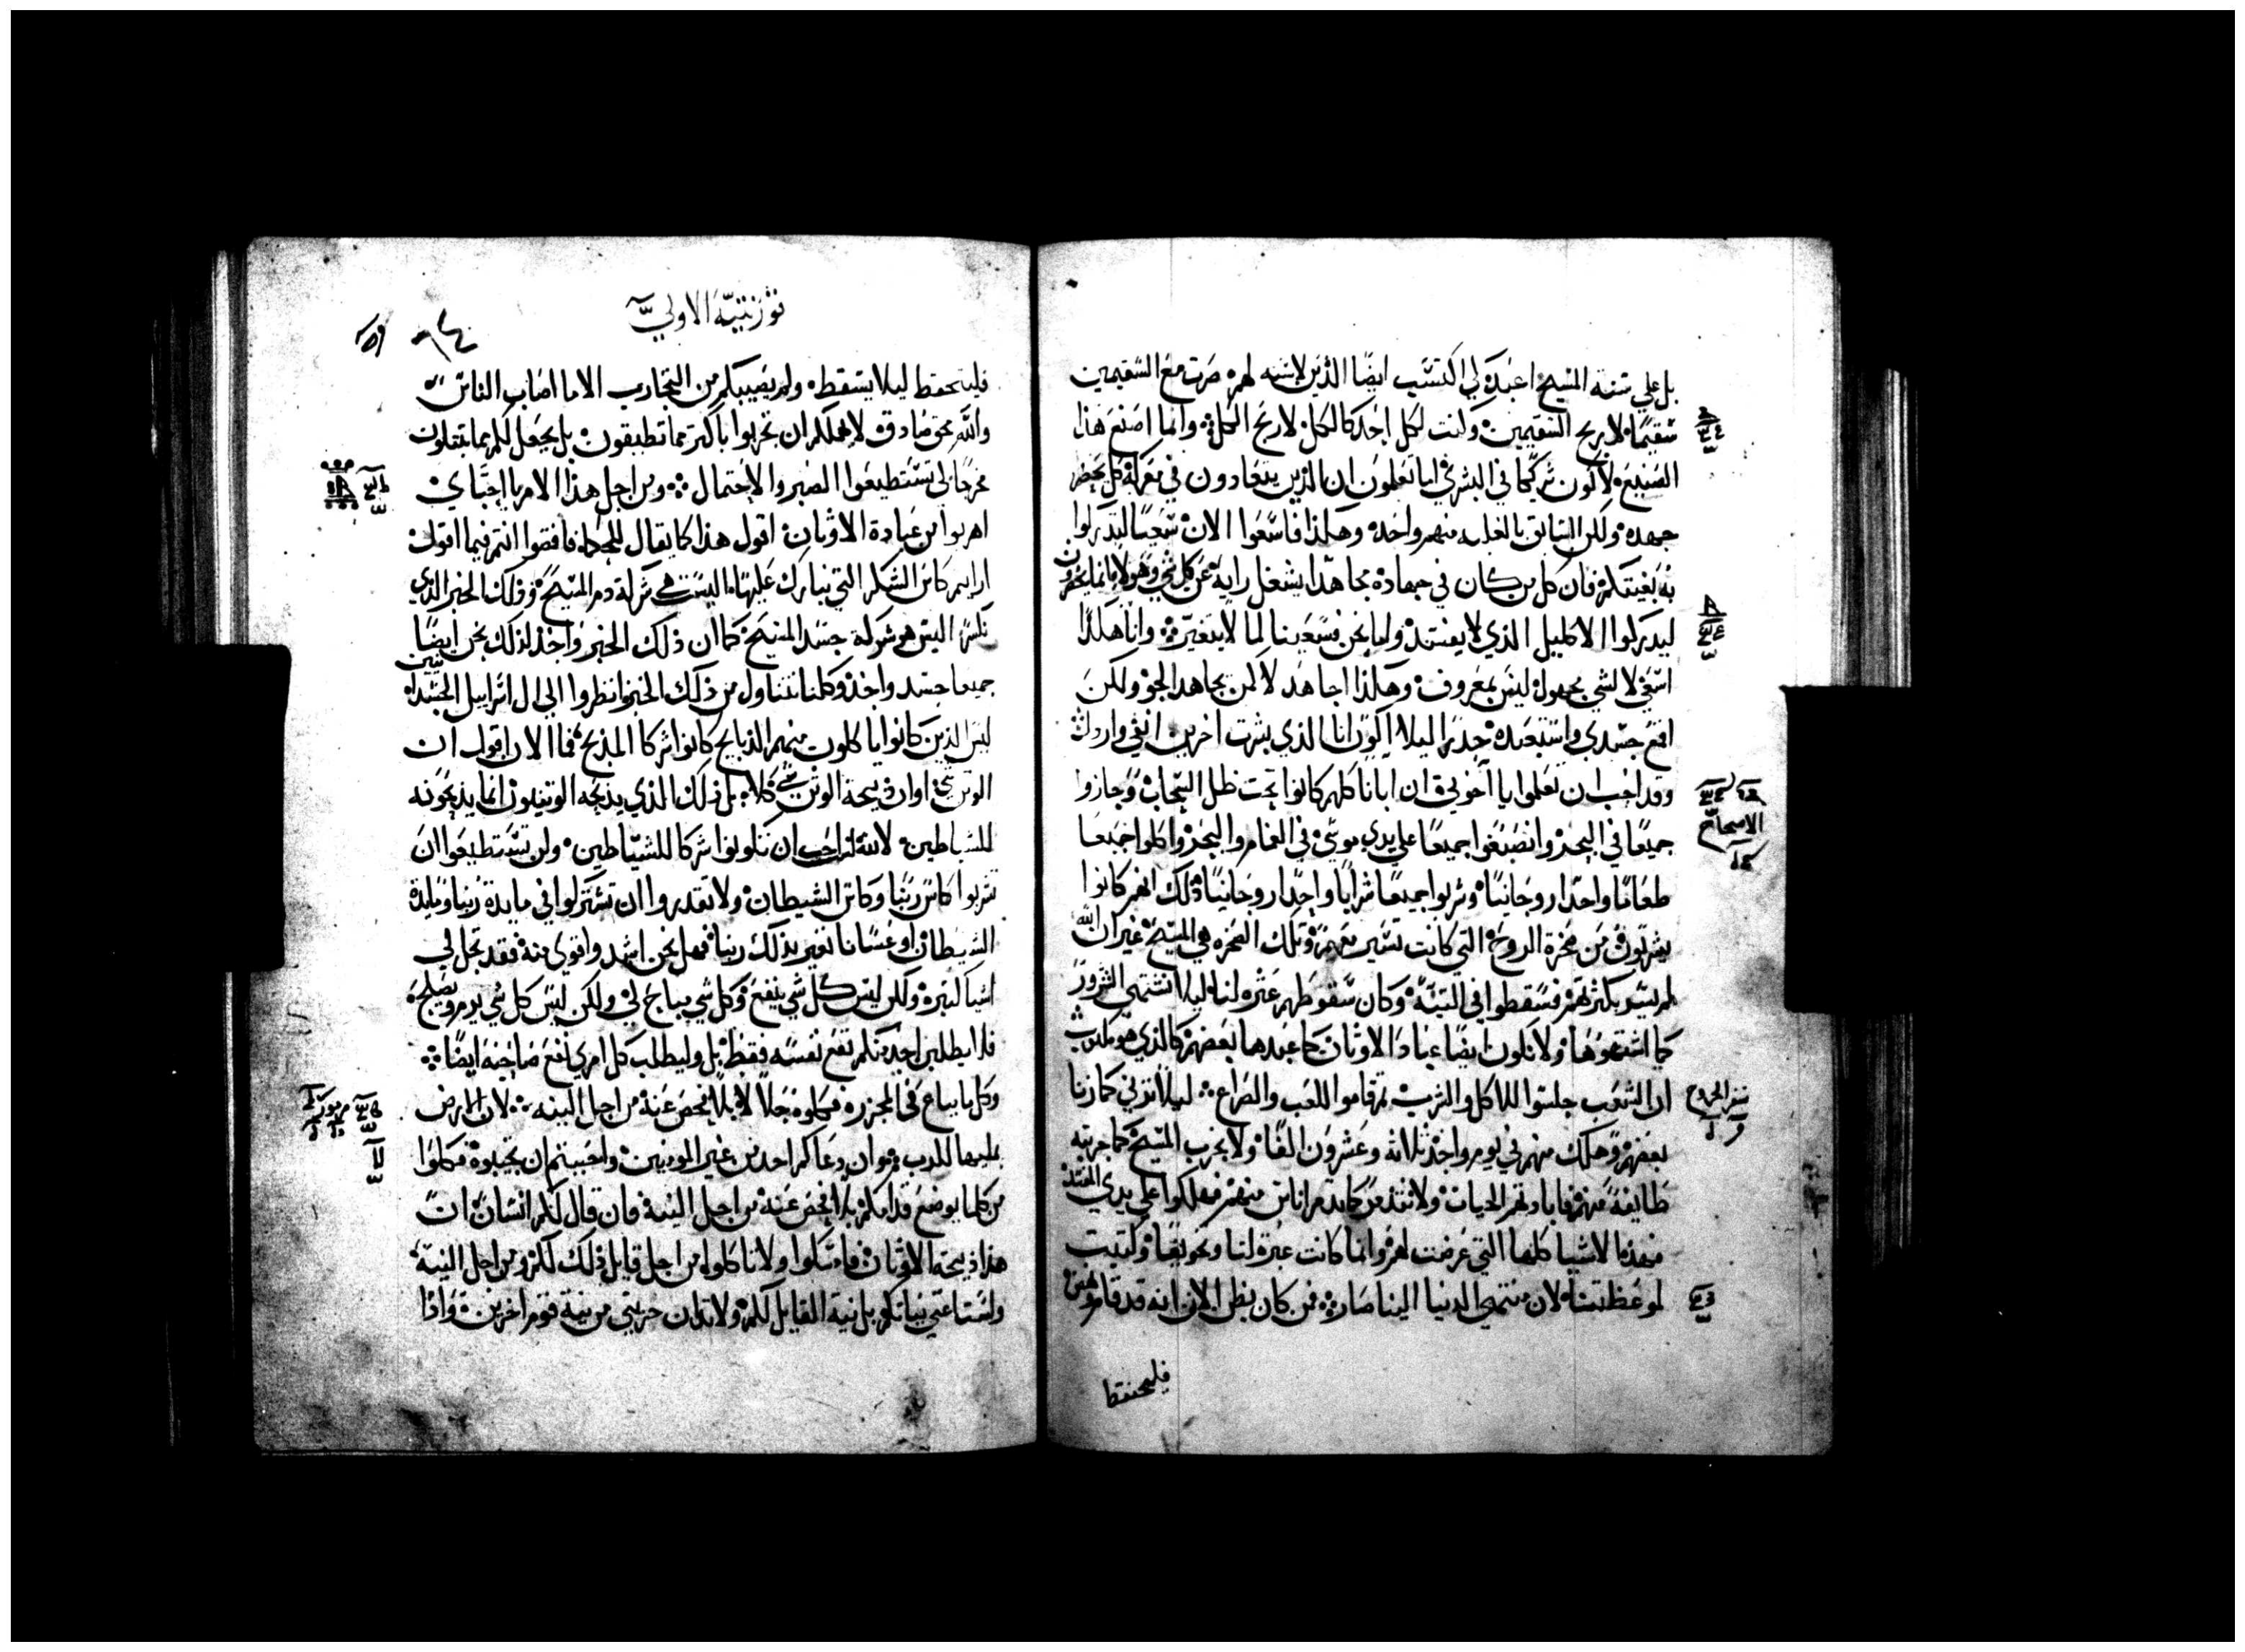 بل علي سنة المسيح اعبدة لي اكتسب ايضا الذين لا سنه لهم صرت مع السقيمين
سقيما لاربح السقيمين وكنت لكل احد كالكل لاربح الكل وانما اصنع هذا
الصنيع لاكون شريكا في البشري اما تعلمون ان الذين يتعادون في معركة كل يحضر
جهده ولكن السابق بالغلبه منهم واحد وهكذا فاسعوا الان سعيا لتدركوا
به بغيتكم فان كل من كان في جهاده مجاهدا يشغل رايه عن كل شي وهولا وانما يحضرون
ليدركوا الاكليل الذي لا يفسد واما نحن فسعينا لما لا يتغير وانا هكذا
اسعي لا لشي مجهول ليس بمعروف وهكذا اجاهد لا كمن يجاهد الجو ولكن
اقمع جسدي واستعبده حذرا ليلا اكون انا الذي بشرت اخرين انفي وارذل
وقد احب ان تعلموا يا اخوتي ان ابانا كلهم كانوا تحت ظل السحاب وجازوا
جميعا في البحر وانصبغوا جميعا علي يدي موسي في الغمام والبحر واكلوا جميعا
طعاما واحدا روحانيا وشربوا جميعا شرابا واحدا روحانيا ذلك انهم كانوا
يشربون من صخرة الروح التي كانت تسير معهم وتلك الصخره هي المسيح غير ان الله
لم يسر بكثرتهم فسقطوا في التيه وكان سقوطهم عثره لنا ليلا نشتهي الشرور
كما اشتهوها ولا نكون ايضا عباد الاوثان كما عبدها بعضهم كالذي هو مكتوب
ان الشعب جلسوا للاكل والشرب ثم قاموا للعب والصراع ليلا نزني كما زنا
بعضهم وهلك منهم في يوم واحد ثلاثه وعشرون الفا ولا نجرب المسيح كما جربته
طايفة منهم فابادتهم الحيات ولا تتذمرن كما تذمر اناس منهم فهلكوا علي يدي المفسد
فهذه الاشيا كلها التي عرضت لهم وانما كانت عبرة لنا وتخويفا وكتبت
لموعظتنا لان منتهي الدنيا الينا صار فمن كان يظن الان انه قد قام
فليحتفظ
سفر الخروج
الاصحاح
قورنتيه الاولي
فليتحفظ ليلا يسقط ولم يصيبكم من التجارب الا ما اصاب الناس
والله محق صادق لا يهملكم ان تجربوا باكثر مما تطيقون بل يجعل لكم بما تبتلون
مخرجا لي تستطيعوا الصبر والاحتمال ومن اجل هذا الامر يا احباي
اهربوا من عبادة الاوثان اقول هذا كما يقال للحكما فاقضوا انتم فيما اقول
ارايتم كاس الشكر التي نبارك عليها اليست هي شركة دم المسيح وذلك الخبز الذي
نكسر اليس هو شركة جسد المسيح كما ان ذلك الخبز واحد لذلك نحن ايضا
جميعا جسد واحد وكلنا نتناول من ذلك الخبز انظروا الي ال اسراييل الجسدانيين
ليس الذين كانوا ياكلون منهم الذبايح كانوا شركا المذبح فما الان اقول ان
الوثن شي او ان ذبيحة الوثن شي كلا بل ذلك الذي يذبحه الوثنيون انما يذبحونه
للشياطين لانني لست احب ان تكونوا شركا للشياطين ولن تستطيعوا ان
تشربوا كاس ربنا وكاس الشيطان ولا تقدروا ان تشتركوا في مايدة ربنا ومايدة
الشيطان او عسانا نغير بذلك ربنا فهل نحن اشد واقوي منه فقد تحل لي
اشيا كثيرة ولكن ليس كل شي ينفع وكل شي يباح لي ولكن ليس كل شي يصلح
فلا يطلبن احد منكم نفع نفسه فقط بل وليطلب كل امري نفع صاحبه ايضا
وكل ما يباع في المجزره فكلوه حلالا بلا فحص عنه من اجل النيه لان الارض
بمليها للرب وان دعاكم احد من غير المومنين واحببتم ان تجيبوه فكلوا
من كلما يوضع قدامكم بلا فحص عنه من اجل النية فان قال لكم انسان ان
هذا ذبيحة الاوثان فامسكوا ولا تاكلوا من اجل قايل ذلك لكم ومن اجل النية
ولست اعني نياتكم بل نية القايل لكم ولا تدان حريتي من نية قوم اخرين واذا